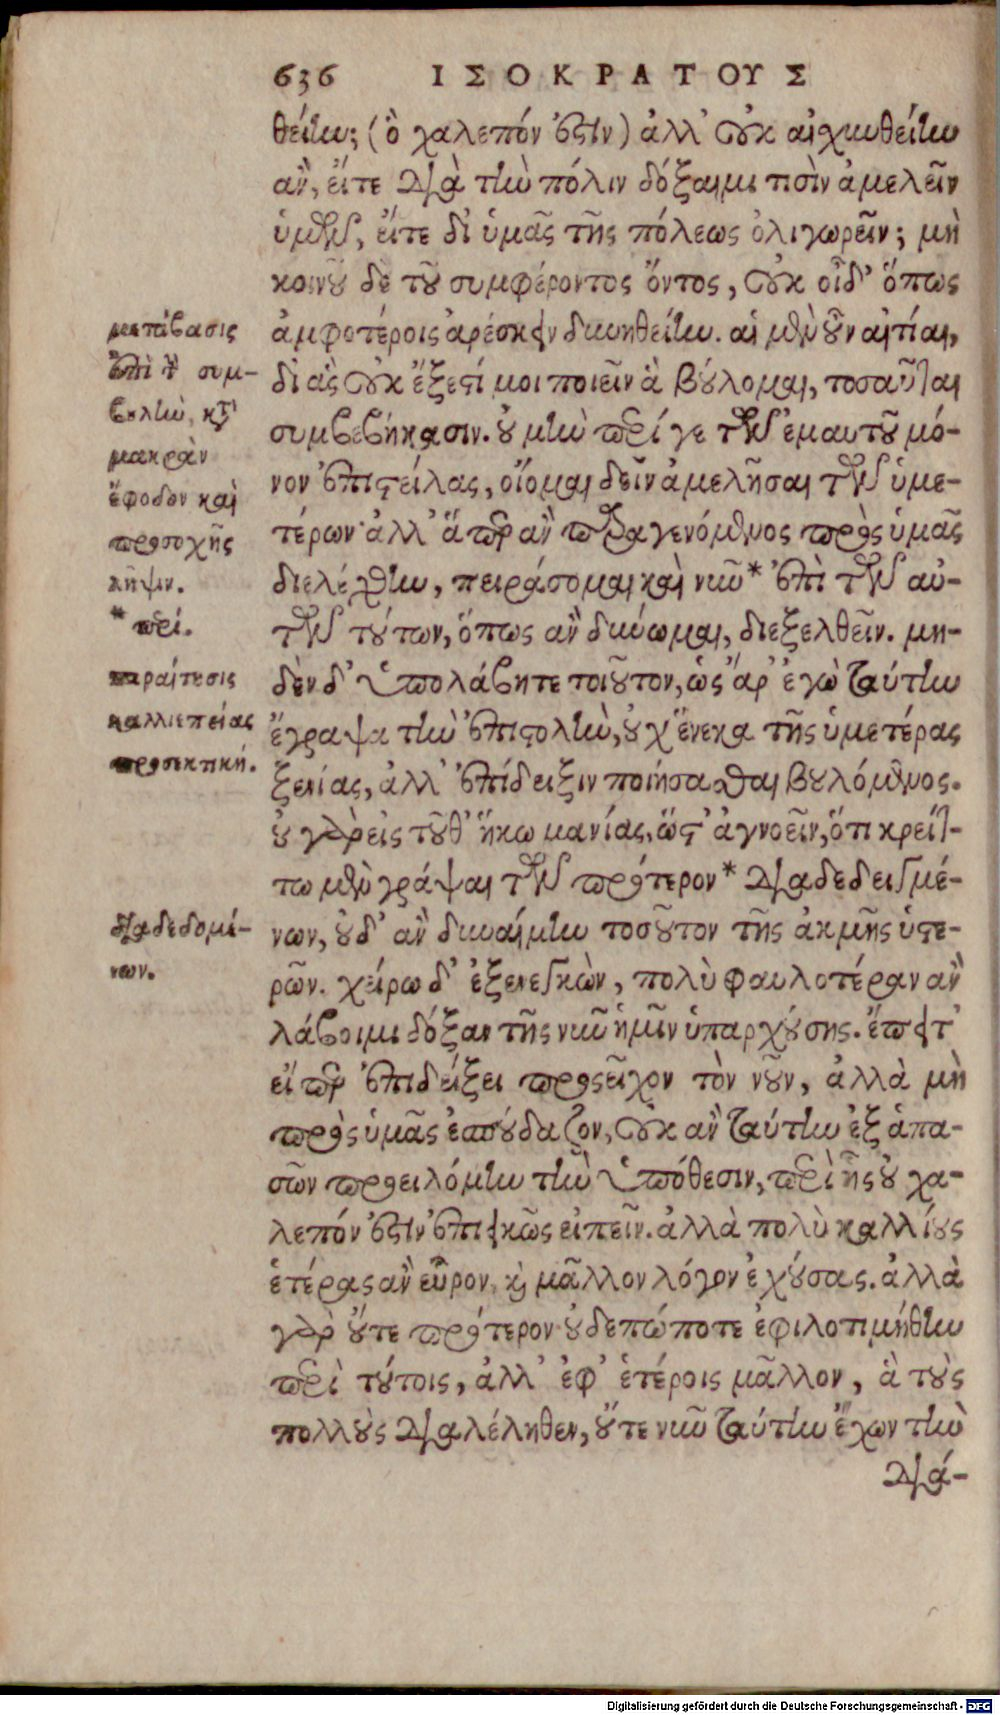 636 ΙΣΟΚΡΑΤΟΥΣ
θείην; (ὃ χαλεπόν ἐστιν) ἀλλ' οὐκ αἰσχυνθείην
ἂν, εἴτε διὰ τὴν πόλιν δόξαιμι τισὶν ἀμελεῖν
ὑμῶν, εἴτε δι' ὑμᾶς τῆς πόλεως ὀλιγωρεῖν; μὴ
κοινοῦ δὲ τοῦ συμφέροντος ὄντος, οὐκ οἶδ' ὅπως
ἀμφοτέροις ἀρέσκειν δυνηθείην. αἱ μὲν οὖν αἰτίαι,
δι' ἃς οὐκ ἔξεστί μοι ποιεῖν ἃ βούλομαι, τοσαῦται
συμβεβήκασιν. οὐ μὴν περί γε τῶν ἐμαυτοῦ μό-
νον ἐπιστείλας, οἴομαι δεῖν ἀμελῆσαι τῶν ὑμε-
τέρων· ἀλλ' ἅπερ ἂν παραγενόμενος πρὸς ὑμᾶς
διελέχθην, πειράσομαι καὶ νῦν* ἐπὶ τῶν αὐ-
τῶν τούτων, ὅπως ἂν δύνωμαι, διεξελθεῖν. μη-
δὲν δ' ὑπολάβητε τοιοῦτον, ὡς ἄρ' ἐγὼ ταύτην
ἔγραψα τὴν ἐπιστολὴν, οὐχ ἕνεκα τῆς ὑμετέρας
ξενίας, ἀλλ' ἐπίδειξιν ποιήσασθαι βουλόμενος.
οὐ γὰρ εἰς τοῦθ' ἥκω μανίας, ὥστ' ἀγνοεῖν, ὅτι κρείτ-
τω μὲν γράψαι τῶν πρότερον* διαδεδειγμέ-
νων, οὐδ' ἂν δυναίμην τοσοῦτον τῆς ἀκμῆς ὑστε-
ρῶν. χείρω δ' ἐξενεγκὼν, πολὺ φαυλοτέραν ἂν
λάβοιμι δόξαν τῆς νῦν ἡμῖν ὑπαρχούσης. ἔπειτ'
εἴπερ ἐπιδείξει προσεῖχον τὸν νοῦν, ἀλλὰ μὴ
πρὸς ὑμᾶς ἐσπούδαζον, οὐκ ἂν ταύτην ἐξ ἁπα-
σῶν προειλόμην τὴν ὑπόθεσιν, περὶ ἧς οὐ χα-
λεπόν ἐστιν ἐπιεικῶς εἰπεῖν. ἀλλὰ πολὺ καλλίους
ἑτέρας ἂν εὗρον, καὶ μᾶλλον λόγον ἐχούσας. ἀλλὰ
γὰρ οὔτε πρότερον οὐδεπώποτε ἐφιλοτιμήθην
περὶ τούτοις, ἀλλ' ἐφ' ἑτέροις μᾶλλον, ἃ τοὺς
πολλοὺς διαλέληθεν, οὔτε νῦν ταύτην ἔχων τὴν
διά-
μετάβασις
ἐπὶ τὴν συμ-
βουλὴν, κατὰ
μακρὰν
ἔφοδον καὶ
προσοχῆς
λῆψιν.
* περί.
παραίτησις
καλλιεπείας
προσεκτική.
διαδεδομέ-
νων.
Digitalisierung gefördert durch die Deutsche Forschungsgemeinschaft - DFG